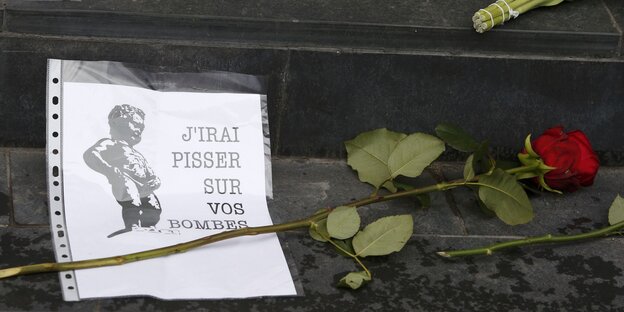 J'IRAI
PISSER
SUR
VOS
BOMBES